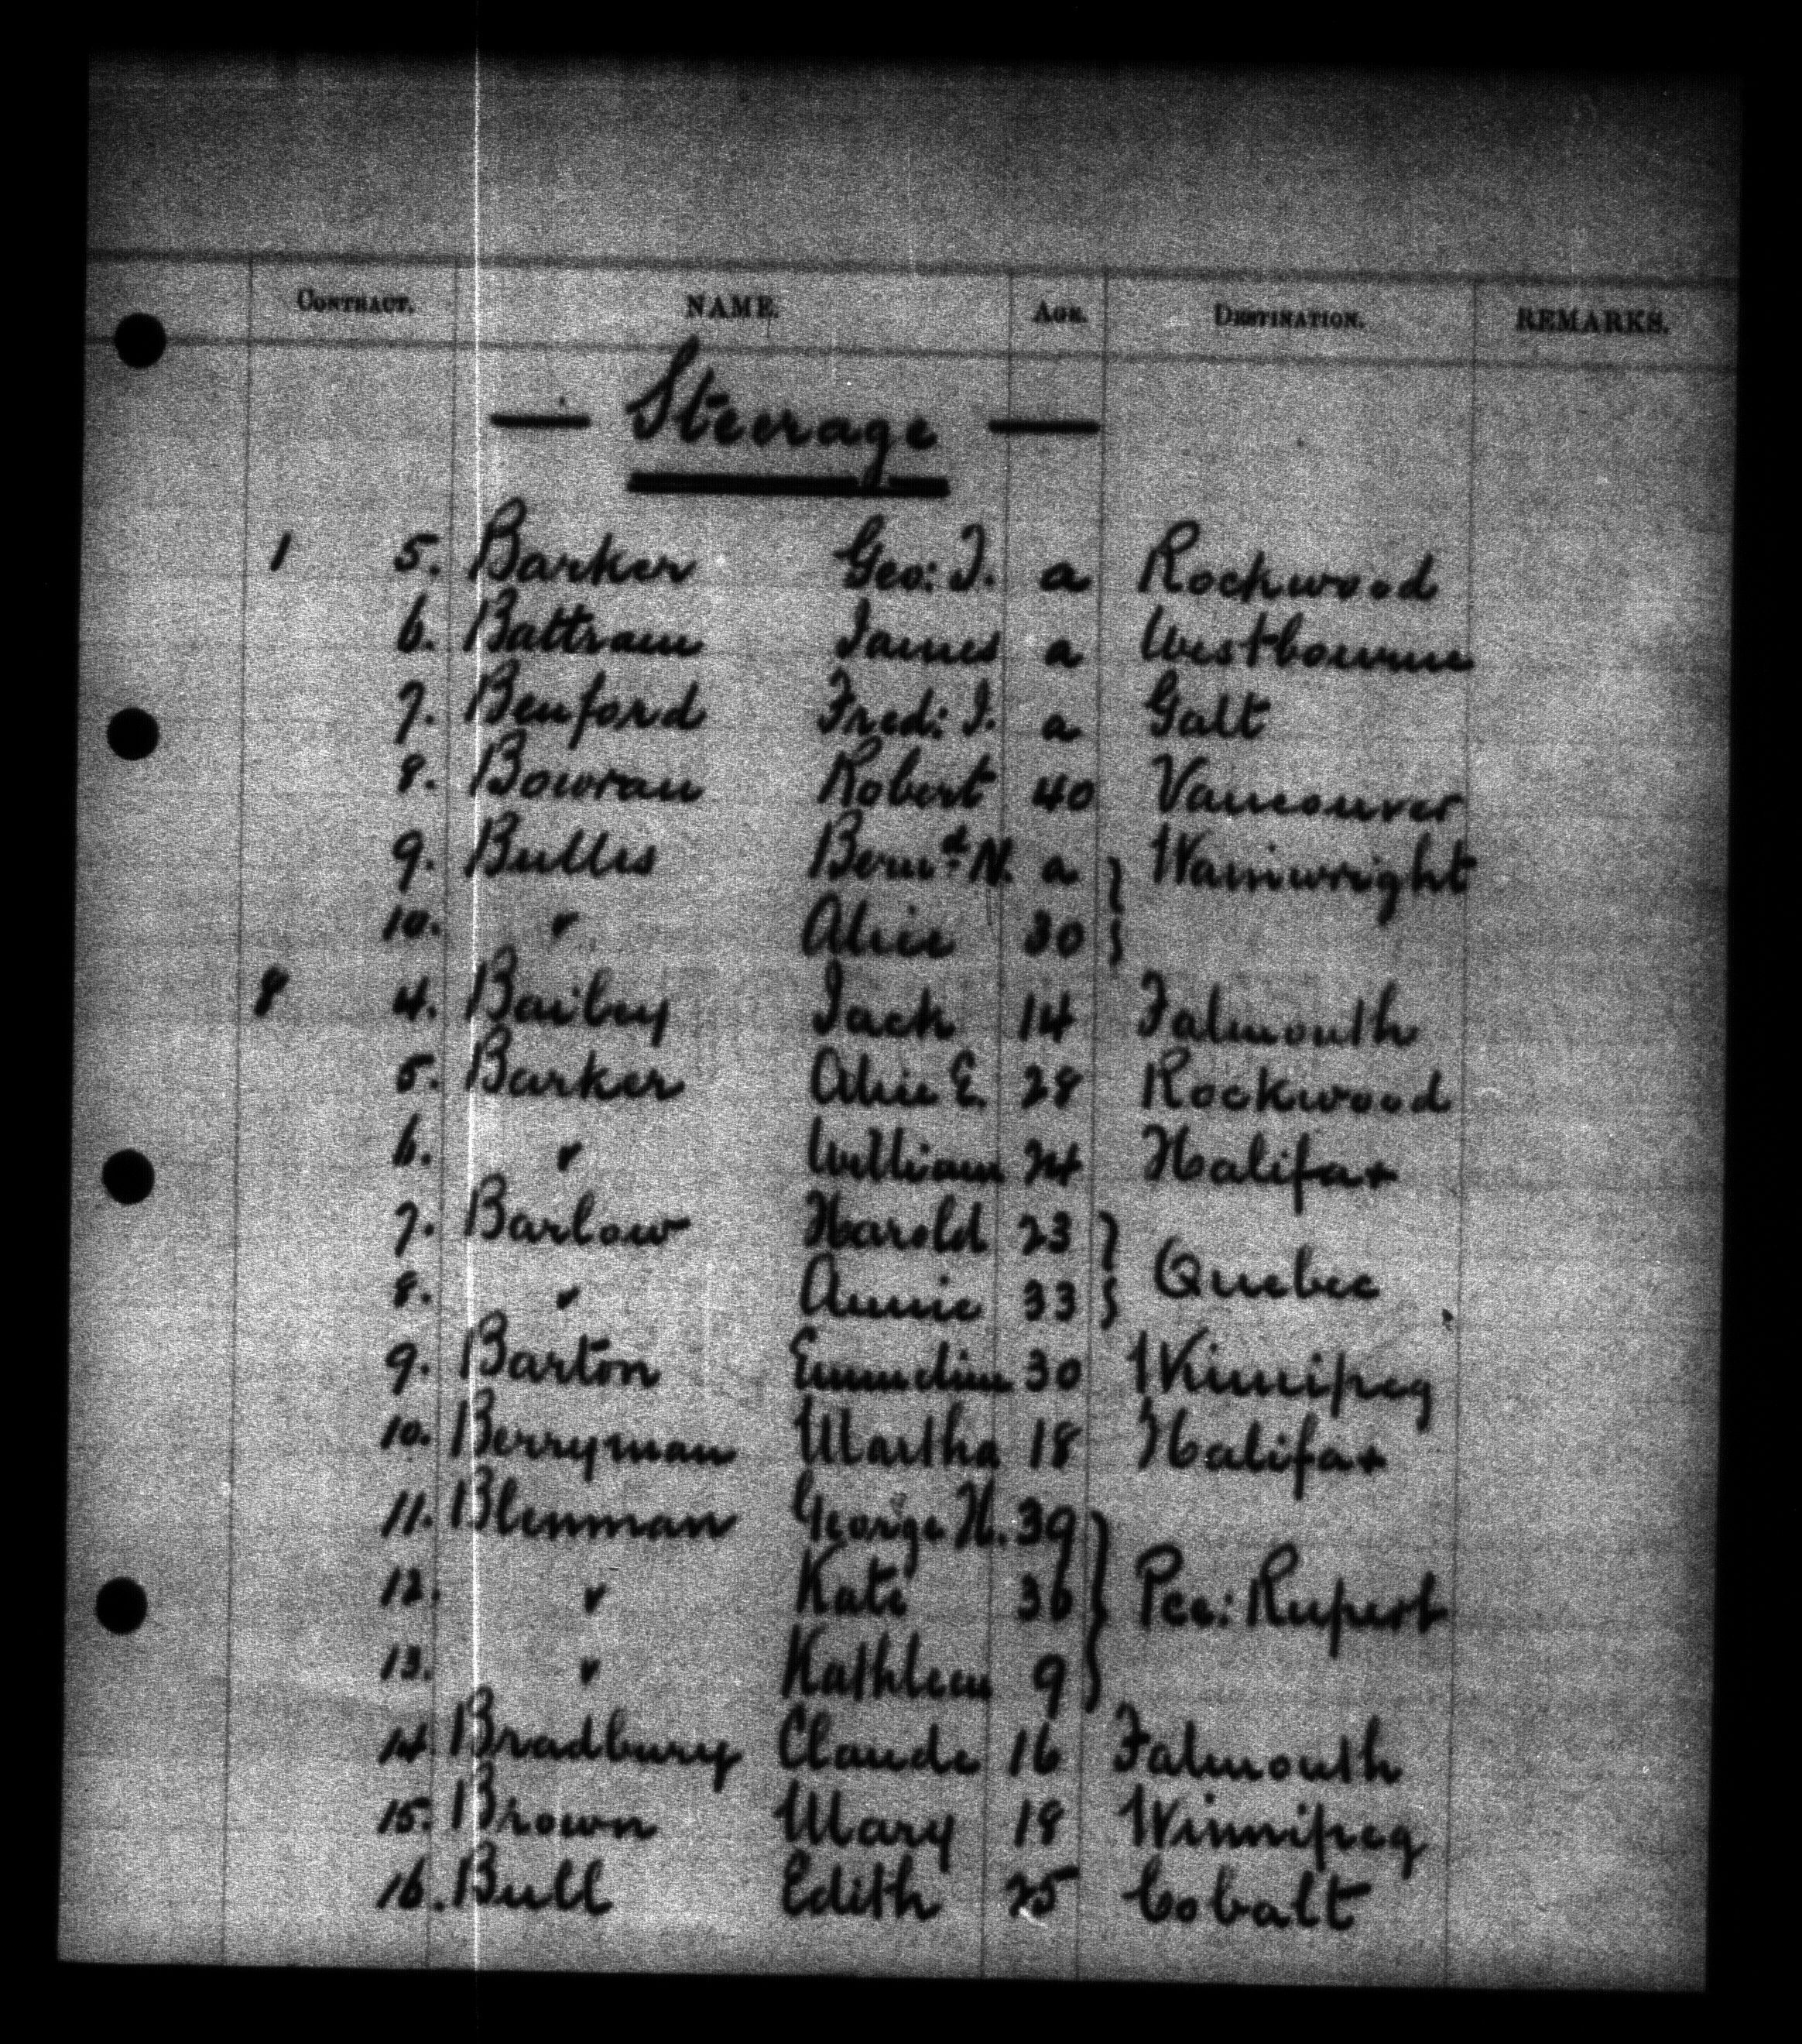 CONTRACT. NAME. AGE. DESTINATION. REMARKS.
— Steerage —
1 5. Barker Geo: J. a Rockwood
6. Battram James a Westbourne
7. Benford Fred: J. a Galt
8. Bowran Robert 40 Vancouver
9. Bullis Bernd. N. a } Wainwright
10. " Alice 30 }
8 4. Bailey Jack 14 Falmouth
5. Barker Alice E. 28 Rockwood
6. " William 24 Halifax
7. Barlow Harold 23 } Quebec
8. " Annie 33 }
9. Barton Emmeline 30 Winnipeg
10. Berryman Martha 18 Halifax
11. Blenman George H. 39 }
12. " Kate 36 } Pce: Rupert
13. " Kathleen 9 }
14. Bradbury Claude 16 Falmouth
15. Brown Mary 18 Winnipeg
16. Bull Edith 25 Cobalt